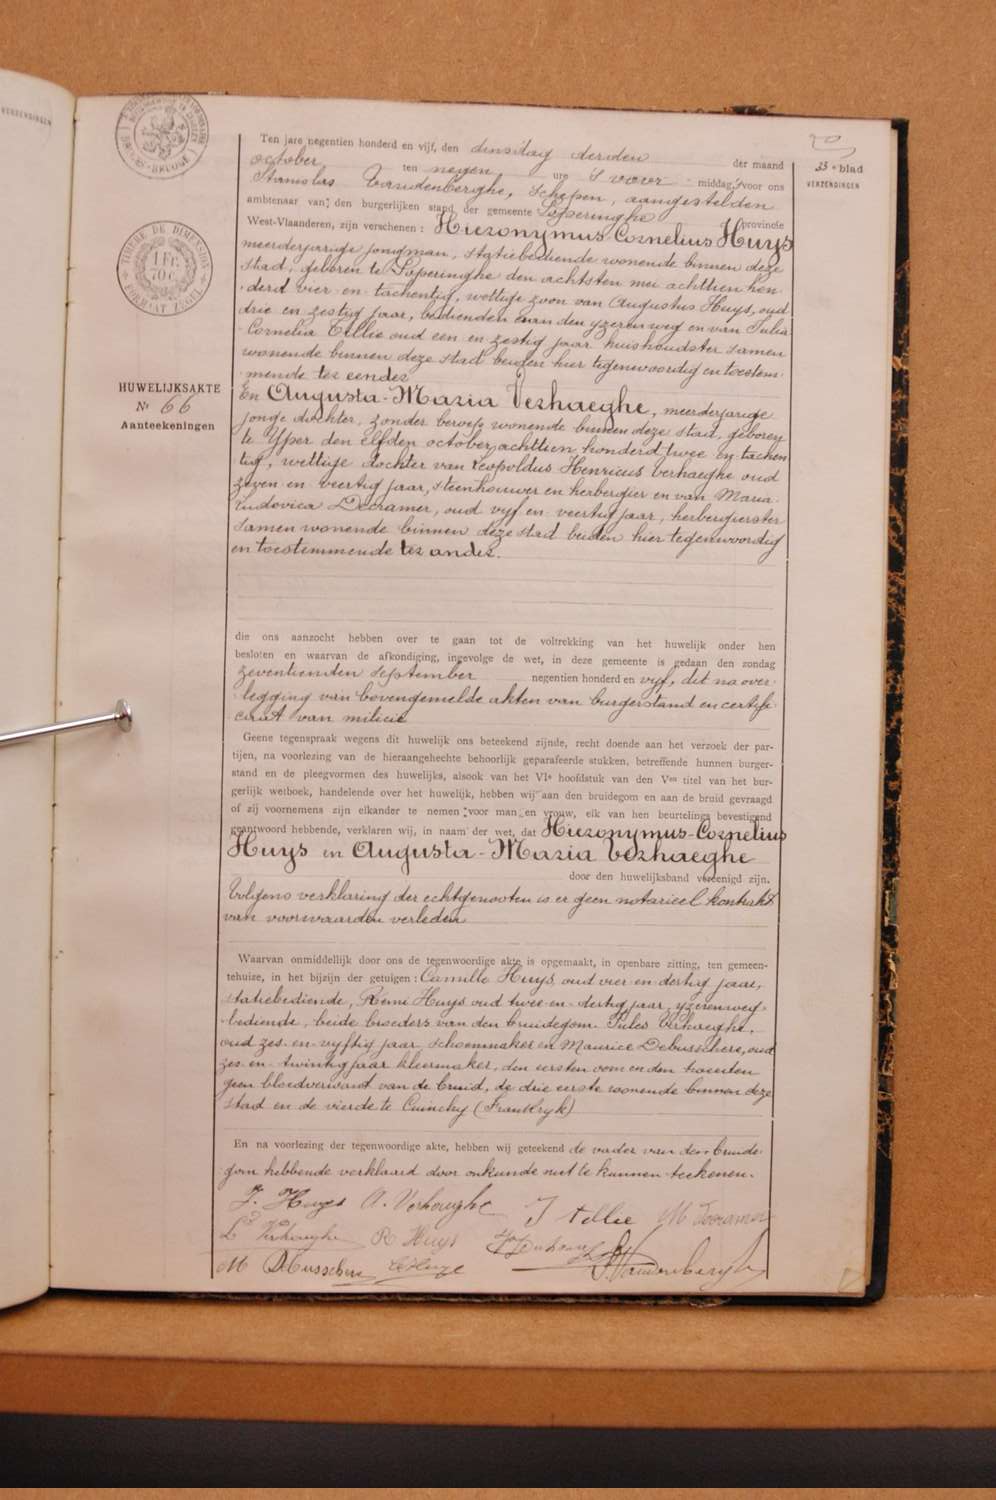 VERZENDINGEN
BRUGES-BRUGGE
TIMBRE DE DIMENSION
1 Fr.
70 c.
FORMAAT ZEGEL
HUWELIJKSAKTE
No 66
Aanteekeningen
33e blad
VERZENDINGEN
Ten jare negentien honderd en vijf, den dinsdag derden der maand
october ten negen ure 's voor middag, voor ons
Stanislas Vandenberghe, Schepen, aangestelden
ambtenaar van den burgerlijken stand der gemeente Poperinghe provincie
West-Vlaanderen, zijn verschenen : Hieronymus-Cornelius Huys
meerderjarige jongman, statiebediende wonende binnen deze
stad, geboren te Poperinghe den achtsten mei achttien hon
derd vier en tachentig, wettige zoon van Augustus Huys, oud
drie en zestig jaar, bedienden aan den yzeren weg en van Julia
Cornelia Tillie oud een en zestig jaar huishoudster samen
wonende binnen deze stad beiden hier tegenwoordig en toestem-
mende ter eender
En Augusta-Maria Verhaeghe, meerderjarige
jonge dochter, zonder beroep wonende binnen deze stad, geboren
te Yper den elfden october achttien honderd twee en tachen
tig, wettige dochter van Leopoldus Henricus Verhaeghe oud
zeven en veertig jaar, steenhouwer en herbergier en van Maria
Ludovica Decramer, oud vyf en veertig jaar, herbergierster
samen wonende binnen deze stad beiden hier tegenwoordig
en toestemmende ter ander.
die ons aanzocht hebben over te gaan tot de voltrekking van het huwelijk onder hen
besloten en waarvan de afkondiging, ingevolge de wet, in deze gemeente is gedaan den zondag
zeventienden september negentien honderd en vyf, dit na over-
legging van bovengemelde akten van burgerstand en certifi-
caat van milicie
Geene tegenspraak wegens dit huwelijk ons beteekend zijnde, recht doende aan het verzoek der par-
tijen, na voorlezing van de hieraangehechte behoorlijk geparafeerde stukken, betreffende hunnen burger-
stand en de pleegvormen des huwelijks, alsook van het VIe hoofdstuk van den Ven titel van het bur-
gerlijk wetboek, handelende over het huwelijk, hebben wij aan den bruidegom en aan de bruid gevraagd
of zij voornemens zijn elkander te nemen voor man en vrouw, elk van hen beurtelings bevestigend
geantwoord hebbende, verklaren wij, in naam der wet, dat Hieronymus-Cornelius
Huys en Augusta-Maria Verhaeghe
door den huwelijksband vereenigd zijn.
Volgens verklaring der echtgenooten is er geen notarieel kontrakt
van voorwaarden verleden
Waarvan onmiddellijk door ons de tegenwoordige akte is opgemaakt, in openbare zitting, ten gemeen-
tehuize, in het bijzijn der getuigen : Camille Huys, oud vier en dertig jaar,
statiebediende, Remi Huys oud twee en dertig jaar, yzerenweg-
bediende, beide broeders van den bruidegom. Jules Verhaeghe,
oud zes en vyftig jaar, schoenmaker en Maurice Debusschere, oud
zes en twintig jaar kleermaker, den eersten oom en den tweeden
geen bloedverwant van de bruid, de drie eerste wonende binnen deze
stad en de vierde te Cuinchy (Frankryk)
En na voorlezing der tegenwoordige akte, hebben wij geteekend de vader van den bruide-
gom hebbende verklaard door onkunde niet te kunnen teekenen.
J. Huys A. Verhaeghe J Tillie M Decramer
Ld Verhaeghe R Huys
M Debusschere C Huys S. Vandenberghe